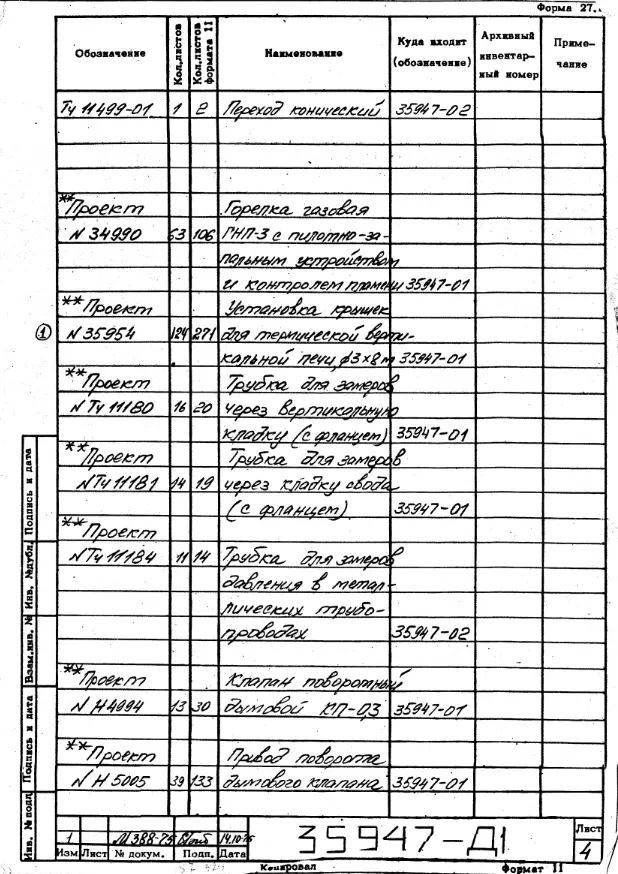 Форма 27.
Обозначение Кол.листов Кол.листов формата 11 Наименование Куда входит (обозначение) Архивный инвентар- ный номер Приме- чание
ТУ 11499-01 1 2 Переход конический 35947-02
**Проект Горелка газовая
N 34990 63 106 ГНП-3 с пилотно-за-
пальным устройством
и контролем пламени 35947-01
**Проект Установка крышек
① N 35954 124 271 для термической верти-
кальной печи ф3х8м 35947-01
**Проект Трубка для замеров
N ТУ 11180 16 20 через вертикальную
кладку (с фланцем) 35947-01
**Проект Трубка для замеров
N ТУ 11181 14 19 через кладку свода
(с фланцем) 35947-01
**Проект
N ТУ 11184 11 14 Трубка для замеров
давления в метал-
лических трубо-
проводах 35947-02
**Проект Клапан поворотный
N Н4994 13 30 дымовой КП-0,3 35947-01
**Проект Привод поворота
N Н 5005 39 133 дымового клапана 35947-01
Инв. № подл. Подпись и дата Взам.инв. № Инв. №дубл. Подпись и дата
1 М388-75 14.10.75
Изм Лист № докум. Подп. Дата
35947-Д1
Лист
4
Копировал Формат 11